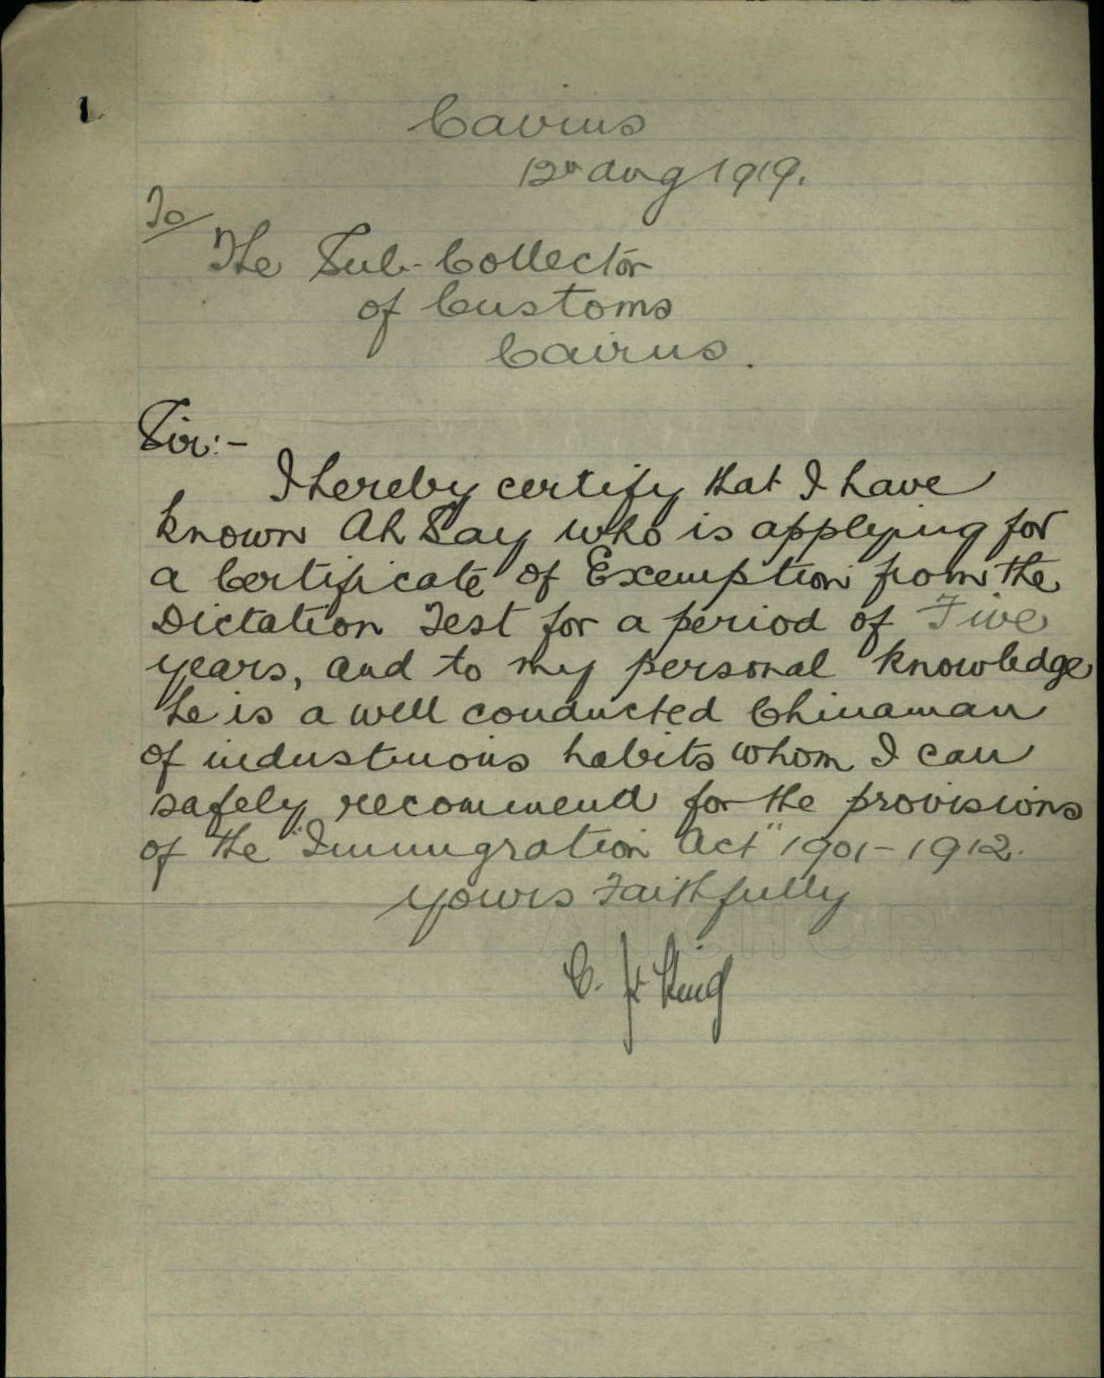 1
Cairns
12th Aug 1919.
To
The Sub-Collector
of Customs
Cairns.
Sir:-
I hereby certify that I have
known Ah Say who is applying for
a Certificate of Exemption from the
Dictation Test for a period of Five
years, and to my personal knowledge
he is a well conducted Chinaman
of industrious habits whom I can
safely recommend for the provisions
of the "Immigration Act" 1901-1912.
Yours Faithfully
C. King